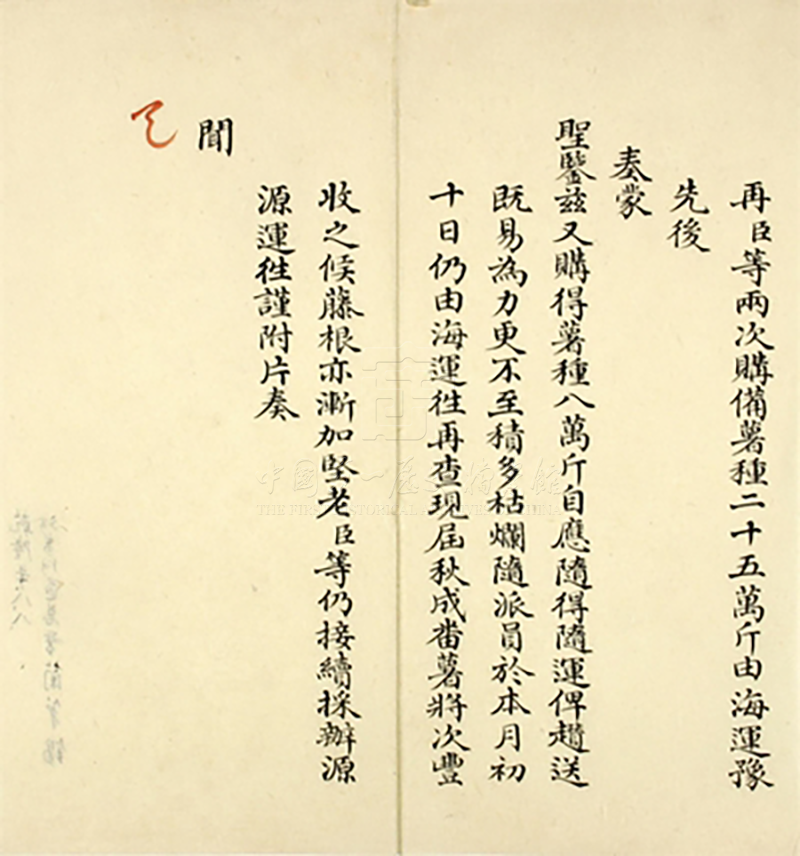 再臣等兩次購備薯種二十五萬斤由海運豫
先後
奏蒙
聖鑒茲又購得薯種八萬斤自應隨得隨運俾趲送
既易為力更不至積多枯爛隨派員於本月初
十日仍由海運徃再查現屆秋成番薯將次豐
收之候藤根亦漸加堅老臣等仍接續採辦源
源運徃謹附片奏
聞
THE FIRST HISTORICAL ARCHIVES OF CHINA